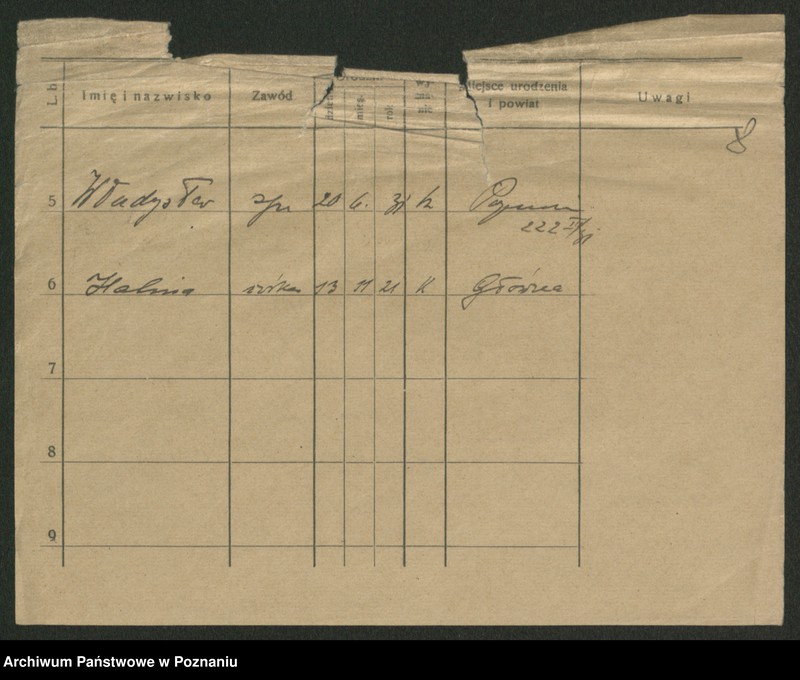 L. b.
Imię i nazwisko Zawód dzień mieg. rok Miejsce urodzenia i powiat Uwagi
8
5 Władysław syn 20 6. 31 k
222 II/31
6 Halina córka 13 11 21 k Główna
7
8
9
Archiwum Państwowe w Poznaniu